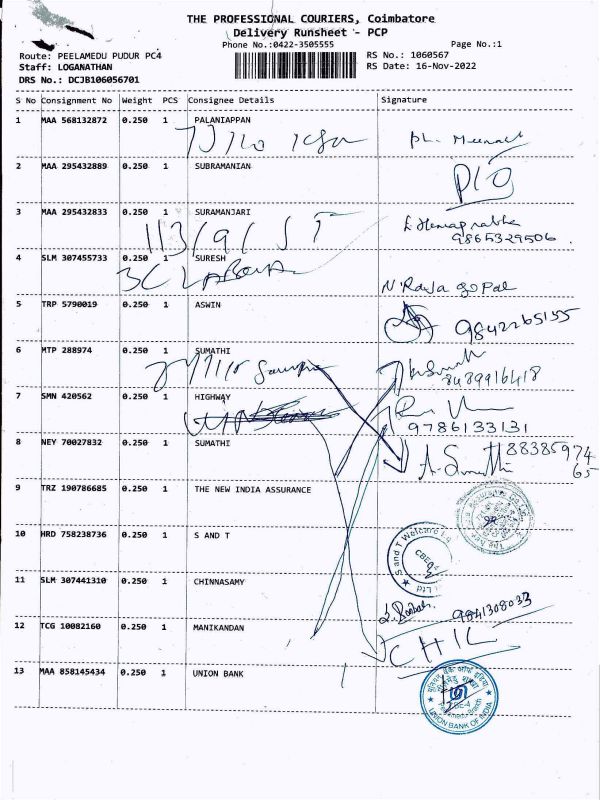 THE PROFESSIONAL COURIERS, Coimbatore
Delivery Runsheet - PCP
Phone No.:0422-3505555
Page No.:1
Route: PEELAMEDU PUDUR PC4
RS No.: 1060567
Staff: LOGANATHAN
RS Date: 16-Nov-2022
DRS No.: DCJB106056701
S No Consignment No Weight PCS Consignee Details Signature
1 MAA 568132872 0.250 1 PALANIAPPAN
2 MAA 295432889 0.250 1 SUBRAMANIAN
P/O
3 MAA 295432833 0.250 1 SURAMANJARI
9865329506
4 SLM 307455733 0.250 1 SURESH
N. Raja gopal
5 TRP 5790019 0.250 1 ASWIN
9842265155
6 MTP 288974 0.250 1 SUMATHI
8489916418
7 SMN 420562 0.250 1 HIGHWAY
9786133131
8 NEY 70027832 0.250 1 SUMATHI
8838597465
9 TRZ 190786685 0.250 1 THE NEW INDIA ASSURANCE
10 HRD 758238736 0.250 1 S AND T
S and T Welcare
11 SLM 307441310 0.250 1 CHINNASAMY
9841308033
12 TCG 10082160 0.250 1 MANIKANDAN
CHIL
13 MAA 858145434 0.250 1 UNION BANK
UNION BANK OF INDIA